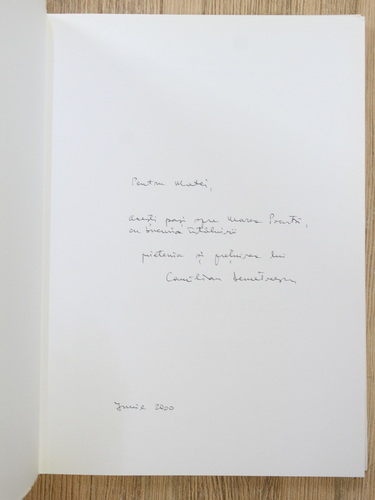 Pentru Matei,
acești pași spre Marea Poartă,
cu bucuria întâlnirii
prietenia și prețuirea lui
Camilian Demetrescu
Iunie 2000